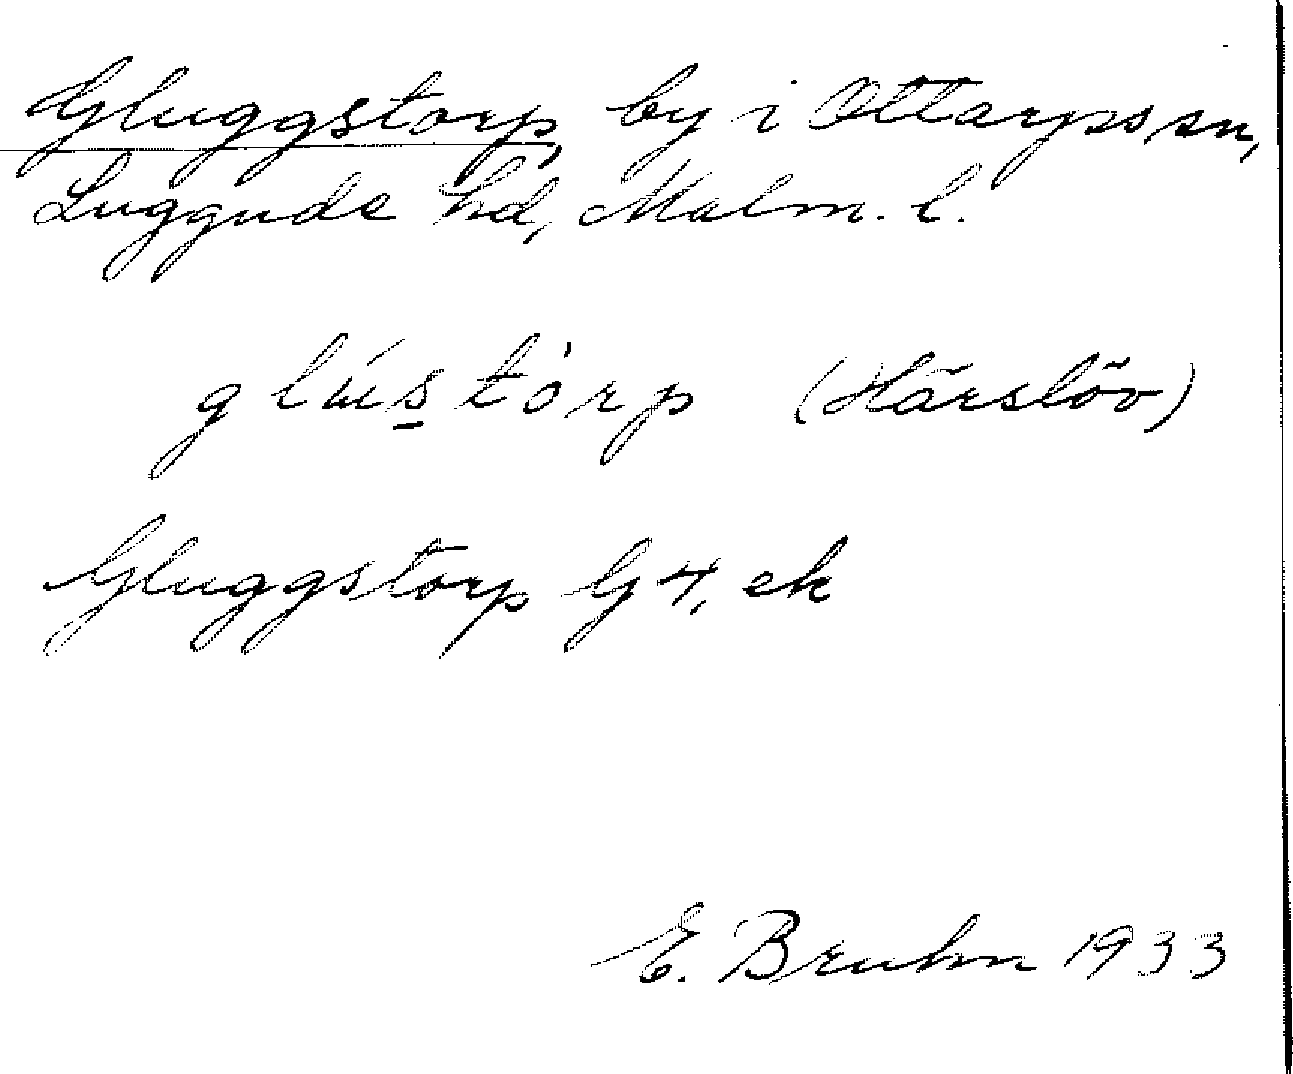 Gluggstorp, by i Ottarps sn,
Luggude hd, Malm. l.
glústòrp (Härslöv)
Gluggstorp G 4, ek
E. Bruhn 1933